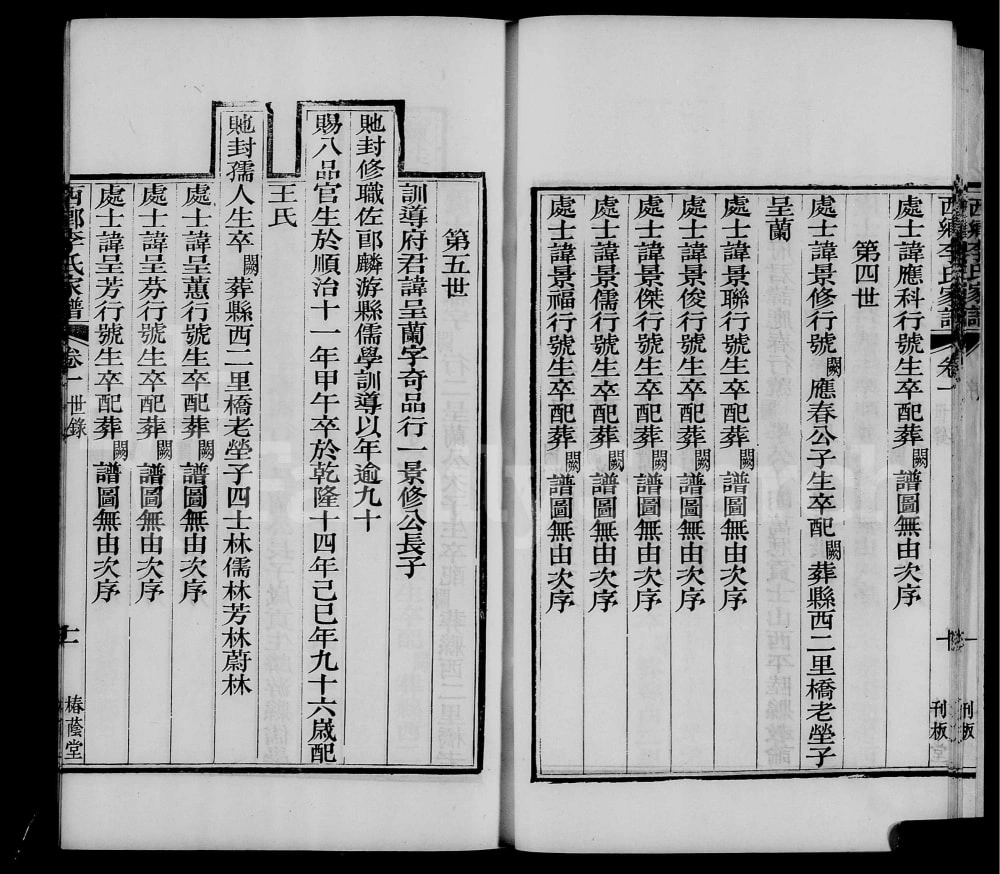 西鄉李氏家譜 卷一 刊板
處士諱應科行號生卒配葬闕譜圖無由次序
第四世
處士諱景修行號闕應春公子生卒配闕葬縣西二里橋老塋子
呈蘭
處士諱景聯行號生卒配葬闕譜圖無由次序
處士諱景俊行號生卒配葬闕譜圖無由次序
處士諱景傑行號生卒配葬闕譜圖無由次序
處士諱景儒行號生卒配葬闕譜圖無由次序
處士諱景福行號生卒配葬闕譜圖無由次序
第五世
訓導府君諱呈蘭字奇品行一景修公長子
貤封修職佐郎麟游縣儒學訓導以年逾九十
賜八品官生於順治十一年甲午卒於乾隆十四年己巳年九十六歲配
王氏
貤封孺人生卒闕葬縣西二里橋老塋子四士林儒林芳林蔚林
處士諱呈蕙行號生卒配葬闕譜圖無由次序
處士諱呈芬行號生卒配葬闕譜圖無由次序
處士諱呈芳行號生卒配葬闕譜圖無由次序
西鄉李氏家譜 卷一 世錄 十一 椿蔭堂